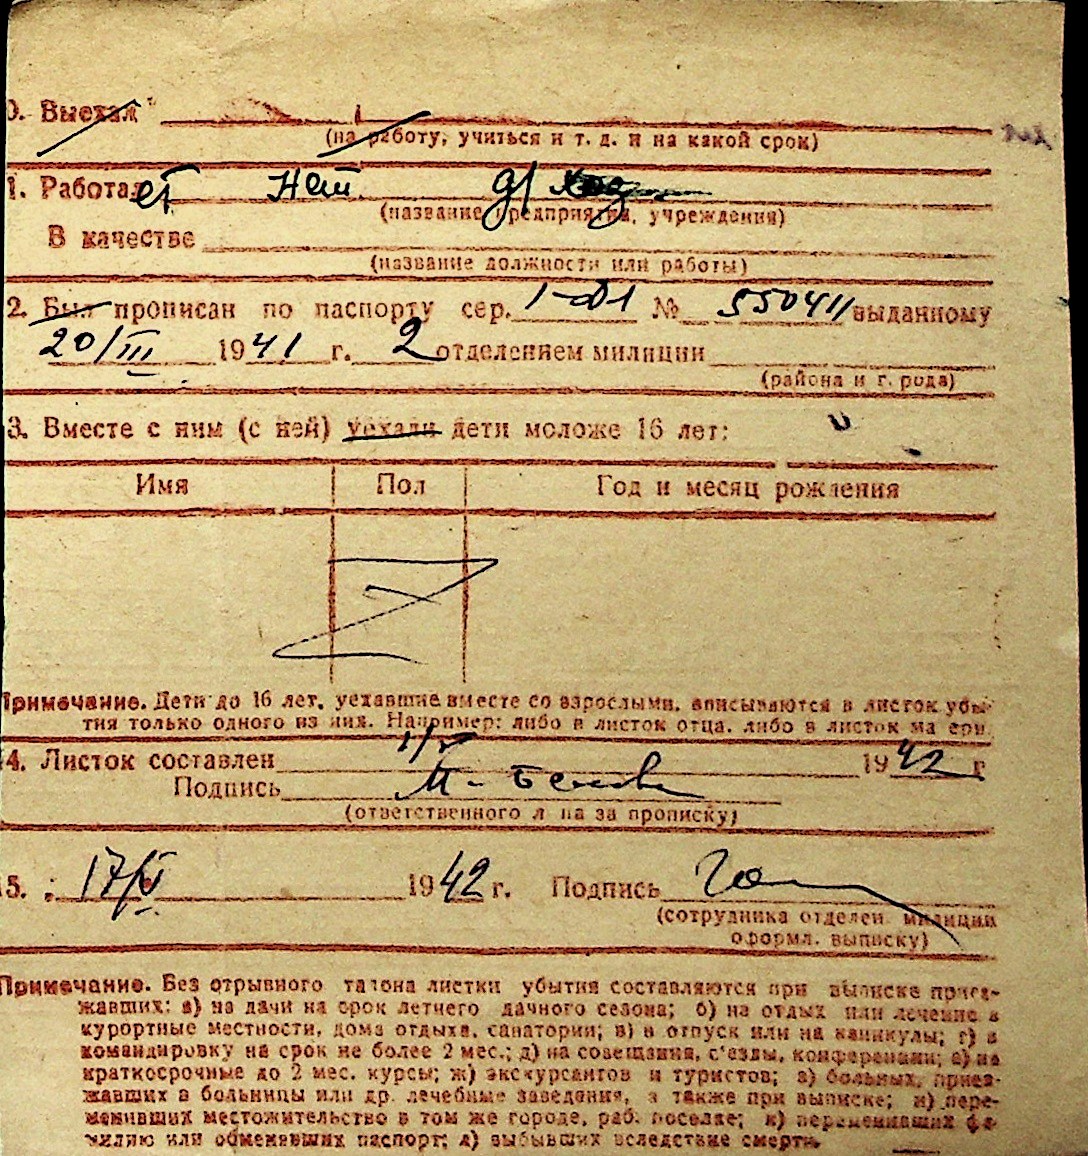 0. Выехал
(на работу, учиться и т. д. и на какой срок)
1. Работает нет д/ход
(название предприятия, учреждения)
В качестве
(название должности или работы)
2. Был прописан по паспорту сер. № 550411 выданному
20/III 1941 г. 2 отделением милиции
(района и города)
3. Вместе с ним (с ней) уехали дети моложе 16 лет:
Имя Пол Год и месяц рождения
Примечание. Дети до 16 лет, уехавшие вместе со взрослыми, вписываются в листок убы-
тия только одного из них. Например: либо в листок отца, либо в листок матери.
4. Листок составлен 1942 г
Подпись
(ответственного лица за прописку)
5. 17/V 1942 г. Подпись
(сотрудника отделен. милиции
оформл. выписку)
Примечание. Без отрывного талона листки убытия составляются при выписке приез-
жавших: а) на дачи на срок летнего дачного сезона; б) на отдых или лечение в
курортные местности, дома отдыха, санатории; в) в отпуск или на каникулы; г) в
командировку на срок не более 2 мес.; д) на совещания, с'езды, конференции; е) на
краткосрочные до 2 мес. курсы; ж) экскурсантов и туристов; з) больных, приез-
жавших в больницы или др. лечебные заведения, а также при выписке; и) пере-
менивших местожительство в том же городе, раб. поселке; к) переменивших фа-
милию или обменявших паспорт; л) выбывших вследствие смерти.